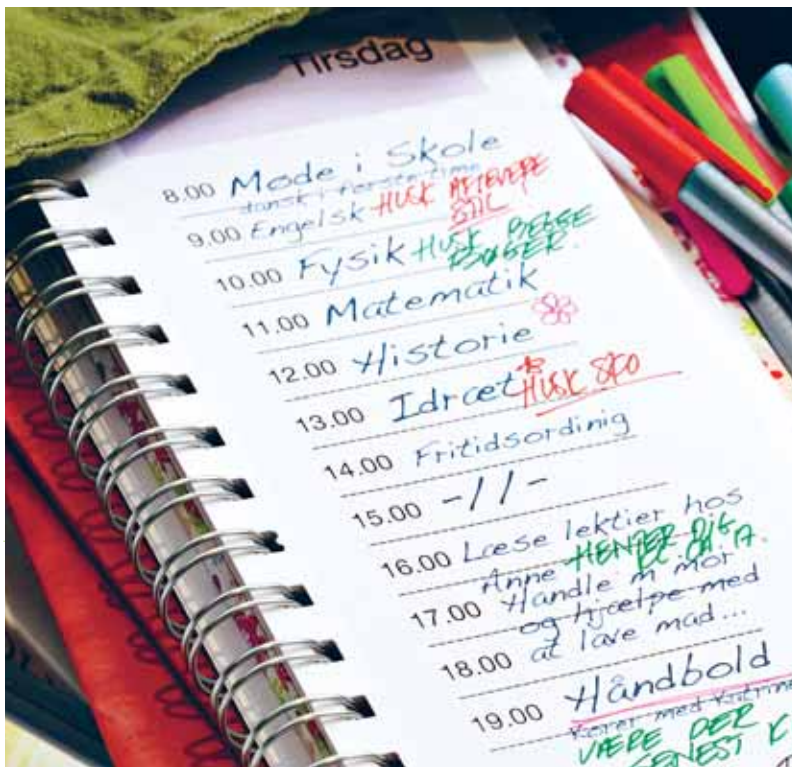 Tirsdag
8.00 Møde i Skole
dansk i første time
9.00 Engelsk HUSK AFLEVERE
STIL
10.00 Fysik HUSK BEGGE
BØGER.
11.00 Matematik
12.00 Historie
13.00 Idræt HUSK SKO
14.00 Fritidsordinig
15.00 -//-
16.00 Læse lektier hos
Anne HENTER DIG
KL.
17.00 Handle m mor
og hjælpe med
18.00 at lave mad...
19.00 Håndbold
Kører med
VÆRE DER
SENEST K